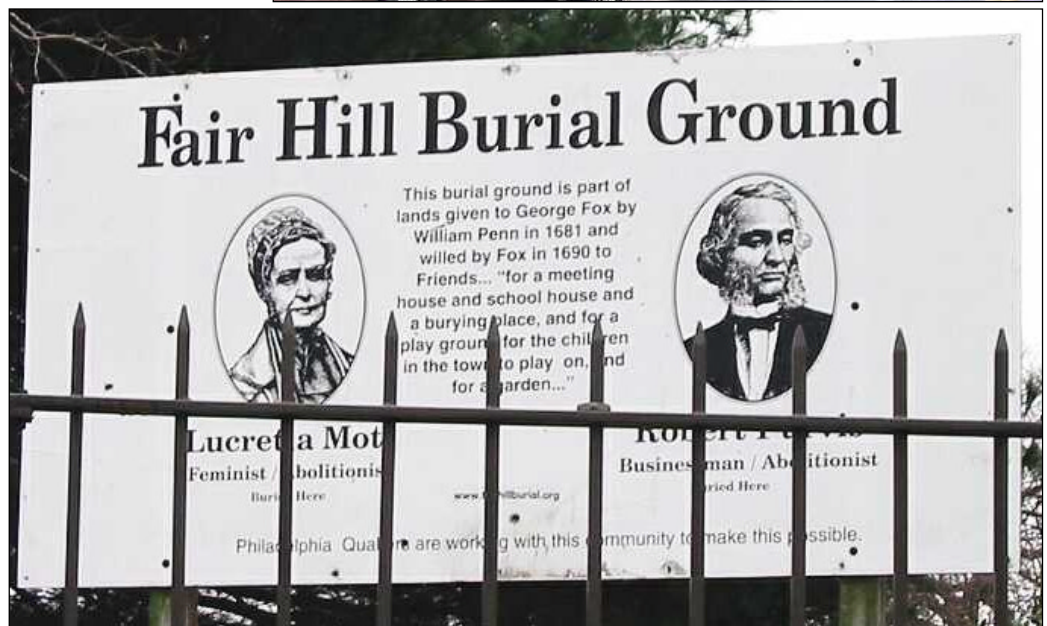 Fair Hill Burial Ground
This burial ground is part of
lands given to George Fox by
William Penn in 1681 and
willed by Fox in 1690 to
Friends... "for a meeting
house and school house and
a burying place, and for a
play ground for the children
in the town to play on, and
for a garden..."
Lucretia Mott
Feminist / Abolitionist
Buried Here
Robert Purvis
Businessman / Abolitionist
Buried Here
www.fairhillburial.org
Philadelphia Quakers are working with this community to make this possible.